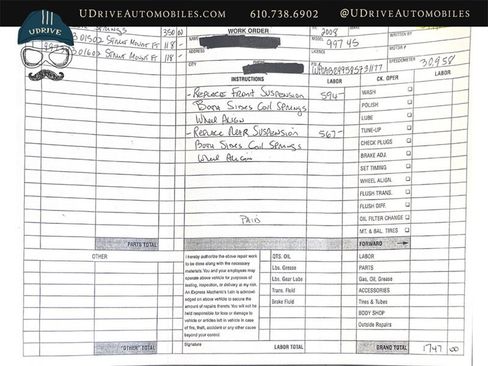 UDriveAutomobiles.com 610.738.6902 @UDriveAutomobiles
UDRIVE
SPRINGS 350 00
STRUT MOUNT FT 118 -
STRUT MOUNT FT 118 -
WORK ORDER
NAME
CITY
2008
MODEL
997 4S
LICENSE
WRITTEN BY
MOTOR #
SPEEDOMETER 30,958
INSTRUCTIONS LABOR CK. OPER LABOR
- REPLACE FRONT SUSPENSION 594-
BOTH SIDES COIL SPRINGS
WHEEL ALIGN
- REPLACE REAR SUSPENSION 567-
BOTH SIDES COIL SPRINGS
WHEEL ALIGN
PAID
WASH
POLISH
LUBE
TUNE-UP
CHECK PLUGS
BRAKE ADJ.
SET TIMING
WHEEL ALIGN.
FLUSH TRANS.
FLUSH DIFF.
OIL FILTER CHANGE
MT. & BAL. TIRES
PARTS TOTAL
FORWARD
OTHER
I hereby authorize the above repair work
to be done along with the necessary
materials. You and your employees may
operate above vehicle for purposes of
testing, inspection, or delivery at my risk.
An Express Mechanic's Lien is acknowl-
edged on above vehicle to secure the
amount of repairs thereto. You will not be
held responsible for loss or damage to
vehicle or articles left in vehicle in case
of fire, theft, accident or any other cause
beyond your control.
Signature
QTS. OIL
Lbs. Grease
Lbs. Gear Lube
Trans. Fluid
Brake Fluid
LABOR
PARTS
Gas, Oil, Grease
ACCESSORIES
Tires & Tubes
BODY SHOP
Outside Repairs
"OTHER" TOTAL
LABOR TOTAL
GRAND TOTAL 1747 00